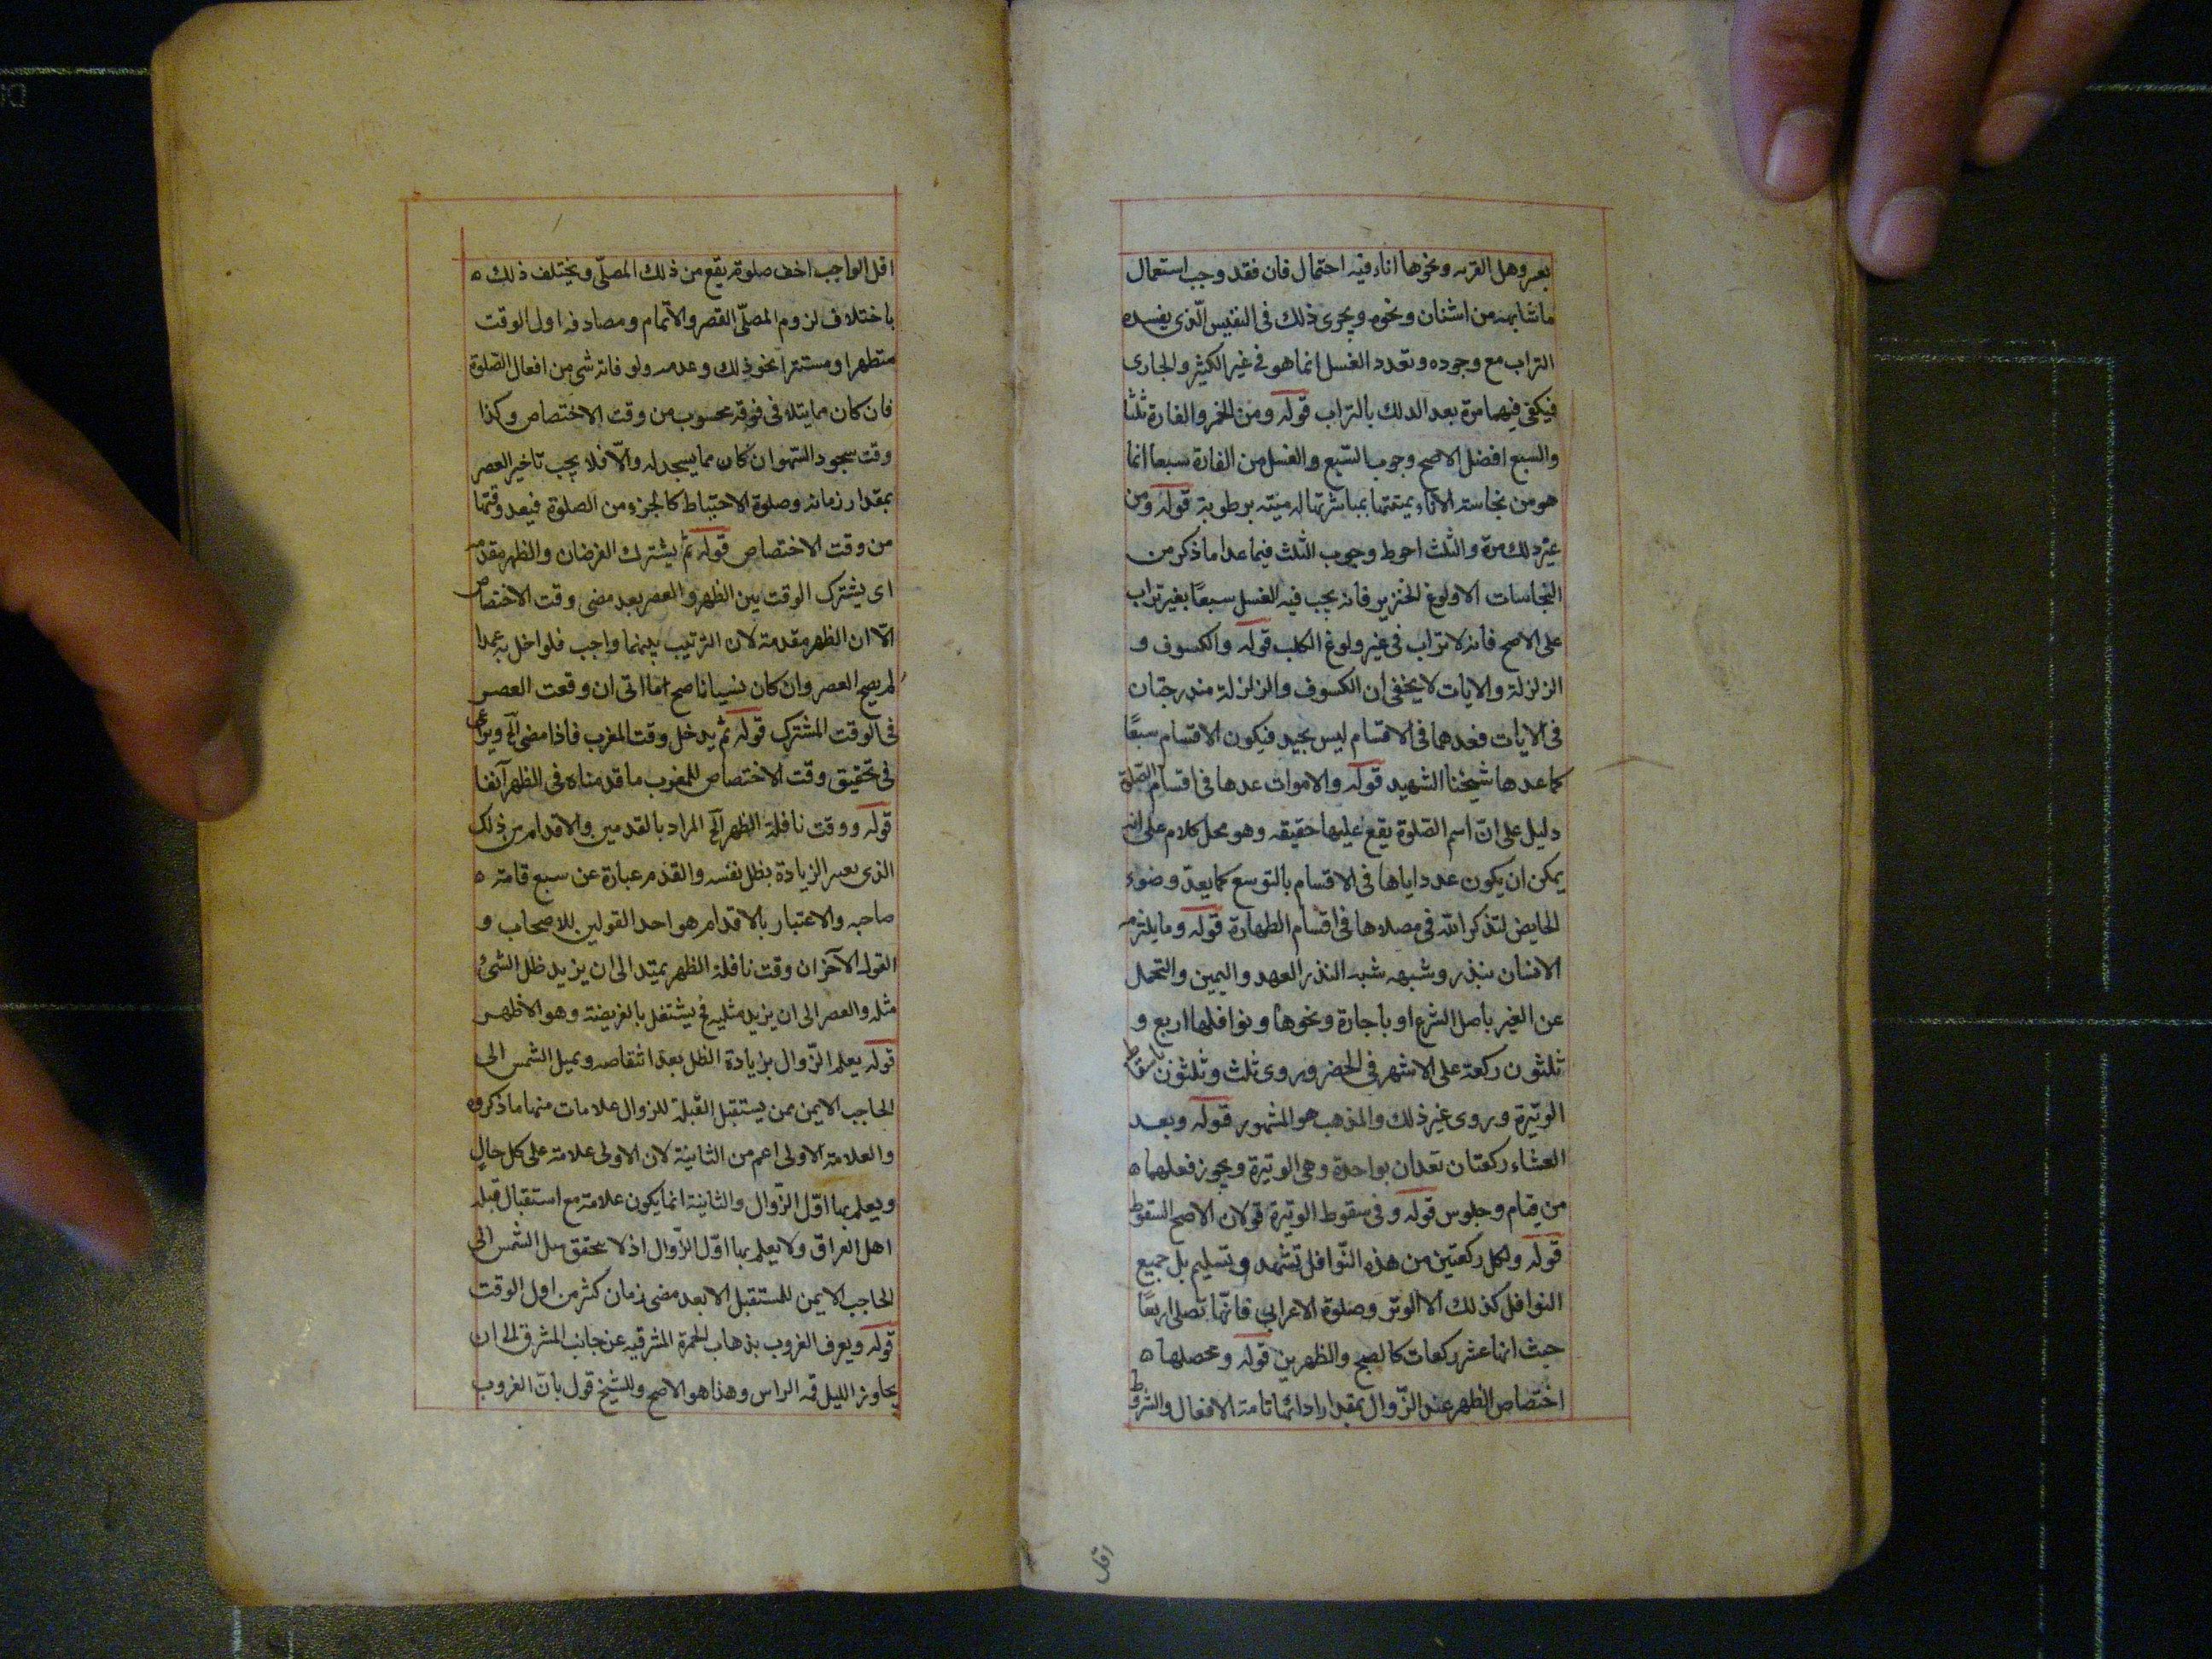 بعر وهل القربه ونحوها اناء فيه احتمال فان فقد وجب استعمال
ما شابهه من اشنان ونحوه ويجرى ذلك فى النفيس الّذى يفسده
التراب مع وجوده وتعدد الغسل انما هو فى غير الكثير والجارى
فيكفى فيهما مرة بعد الدلك بالتراب قوله ومن الخمر والفارة ثلثا
والسبع افضل الاصح وجوب السّبع والغسل من الفارة سبعا انما
هو من نجاسة الاناء بميتتها بمباشرتها له ميته برطوبة قوله ومن
غير ذلك مرة والثلث احوط وجوب الثلث فيما عدا ما ذكر من
النجاسات الا ولوغ الخنزير فانه يجب فيه الغسل سبعًا بغير تراب
على الاصح فانه لا تراب فى غير ولوغ الكلب قوله والكسوف و
الزلزلة والايات لا يخفى ان الكسوف والزلزلة مندرجتان
فى الايات فعدهما فى الاقسام ليس بجيد فيكون الاقسام سبعًا
كما عدها شيخنا الشهيد قوله والاموات عدها فى اقسام الصّلوة
دليل على انّ اسم الصّلوة يقع عليها حقيقه وهو محل كلام على انه
يمكن ان يكون عدد اياها فى الاقسام بالتوسع كما يعدّ وضوء
الحايض لتذكر الله فى مصلاها فى اقسام الطهارة قوله وما يلتزمه
الانسان بنذر وشبهه شبه النذر العهد واليمين والتحمل
عن الغير باصل الشرع او باجارة ونحوها ونوافلها اربع و
ثلثون ركعة على الاشهر فى الحضر وروى ثلث وثلثون باسقاط
الوتيرة وروى غير ذلك والمذهب هو المشهور قوله وبعد
العشاء ركعتان تعدان بواحدة وهى الوتيرة ويجوز فعلهما ه
من قيام وجلوس قوله وفى سقوط الوتيرة قولان الاصح السقوط
قوله ولكل ركعتين من هذه النّوافل تشهد وتسليم بل جميع
النوافل كذلك الا الوتر وصلوة الاعرابي فانّها تصلى اربعًا
حيث انها عشر ركعات كالصبح والظهرين قوله ومحصلها ه
اختصاص الظهر عند الزّوال بمقدار ادائها تامة الافعال والشروط
اقل
اقل الواجب اخف صلوة يقع من ذلك المصلّى ويختلف ذلك ه
باختلاف لزوم المصلّى القصر والاتمام ومصادفه اول الوقت
متطهرا ومستترا نحو ذلك وعدمه ولو فاته شى من افعال الصّلوة
فان كان مما يتلافى فوقته محسوب من وقت الاختصاص وكذا
وقت سجود السّهو ان كان مما يسجد له والّا فلا يجب تاخير العصر
بمقدار زمانه وصلوة الاحتياط كالجزء من الصلوة فيعد وقتها
من وقت الاختصاص قوله ثمّ يشترك الفرضان والظهر مقدمه
اى يشترك الوقت بين الظهر والعصر بعد مضى وقت الاختصاص
الّا ان الظهر مقدمة لان الترتيب بينهما واجب فلو اخل به عمدا
لم يصح العصر وان كان نسيانا صح اما اتى ان وقعت العصر
فى الوقت المشترك قوله ثم يدخل وقت المغرب فاذا مضى الخ ويراعى
فى تحقيق وقت الاختصاص للمغرب ما قدمناه فى الظهر آنفا
قوله ووقت نافلة الظهر الخ المراد بالقدمين والاقدام من ذلك
الذى يعبر الزيادة بظل نفسه والقدم عبارة عن سبع قامة ه
صاحبه والاعتبار بالاقدام هو احد القولين للاصحاب و
القول الآخر ان وقت نافلة الظهر يمتد الى ان يزيد ظل الشئ
مثله والعصر الى ان يزيد مثليه ثم يشتغل بالفريضة وهو الاظهر
قوله يعلم الزّوال بزيادة الظل بعد انتقاصه وبميل الشمس الى
الحاجب الايمن ممن يستقبل القبلة للزوال علامات منها ما ذكره
والعلامة الاولى اعم من الثانية لان الاولى علامة على كل حال
ويعلم بها اوّل الزّوال والثانية انما يكون علامة مع استقبال قبله
اهل العراق ولا يعلم بها اوّل الزّوال اذ لا يتحقق ميل الشمس الى
الحاجب الايمن للمستقبل الا بعد مضى زمان كثير من اول الوقت
قوله ويعرف الغروب بذهاب الحمرة المشرقيه عن جانب المشرق الى ان
يجاوز الليل قمه الراس وهذا هو الاصح وللشيخ قول بانّ الغروب